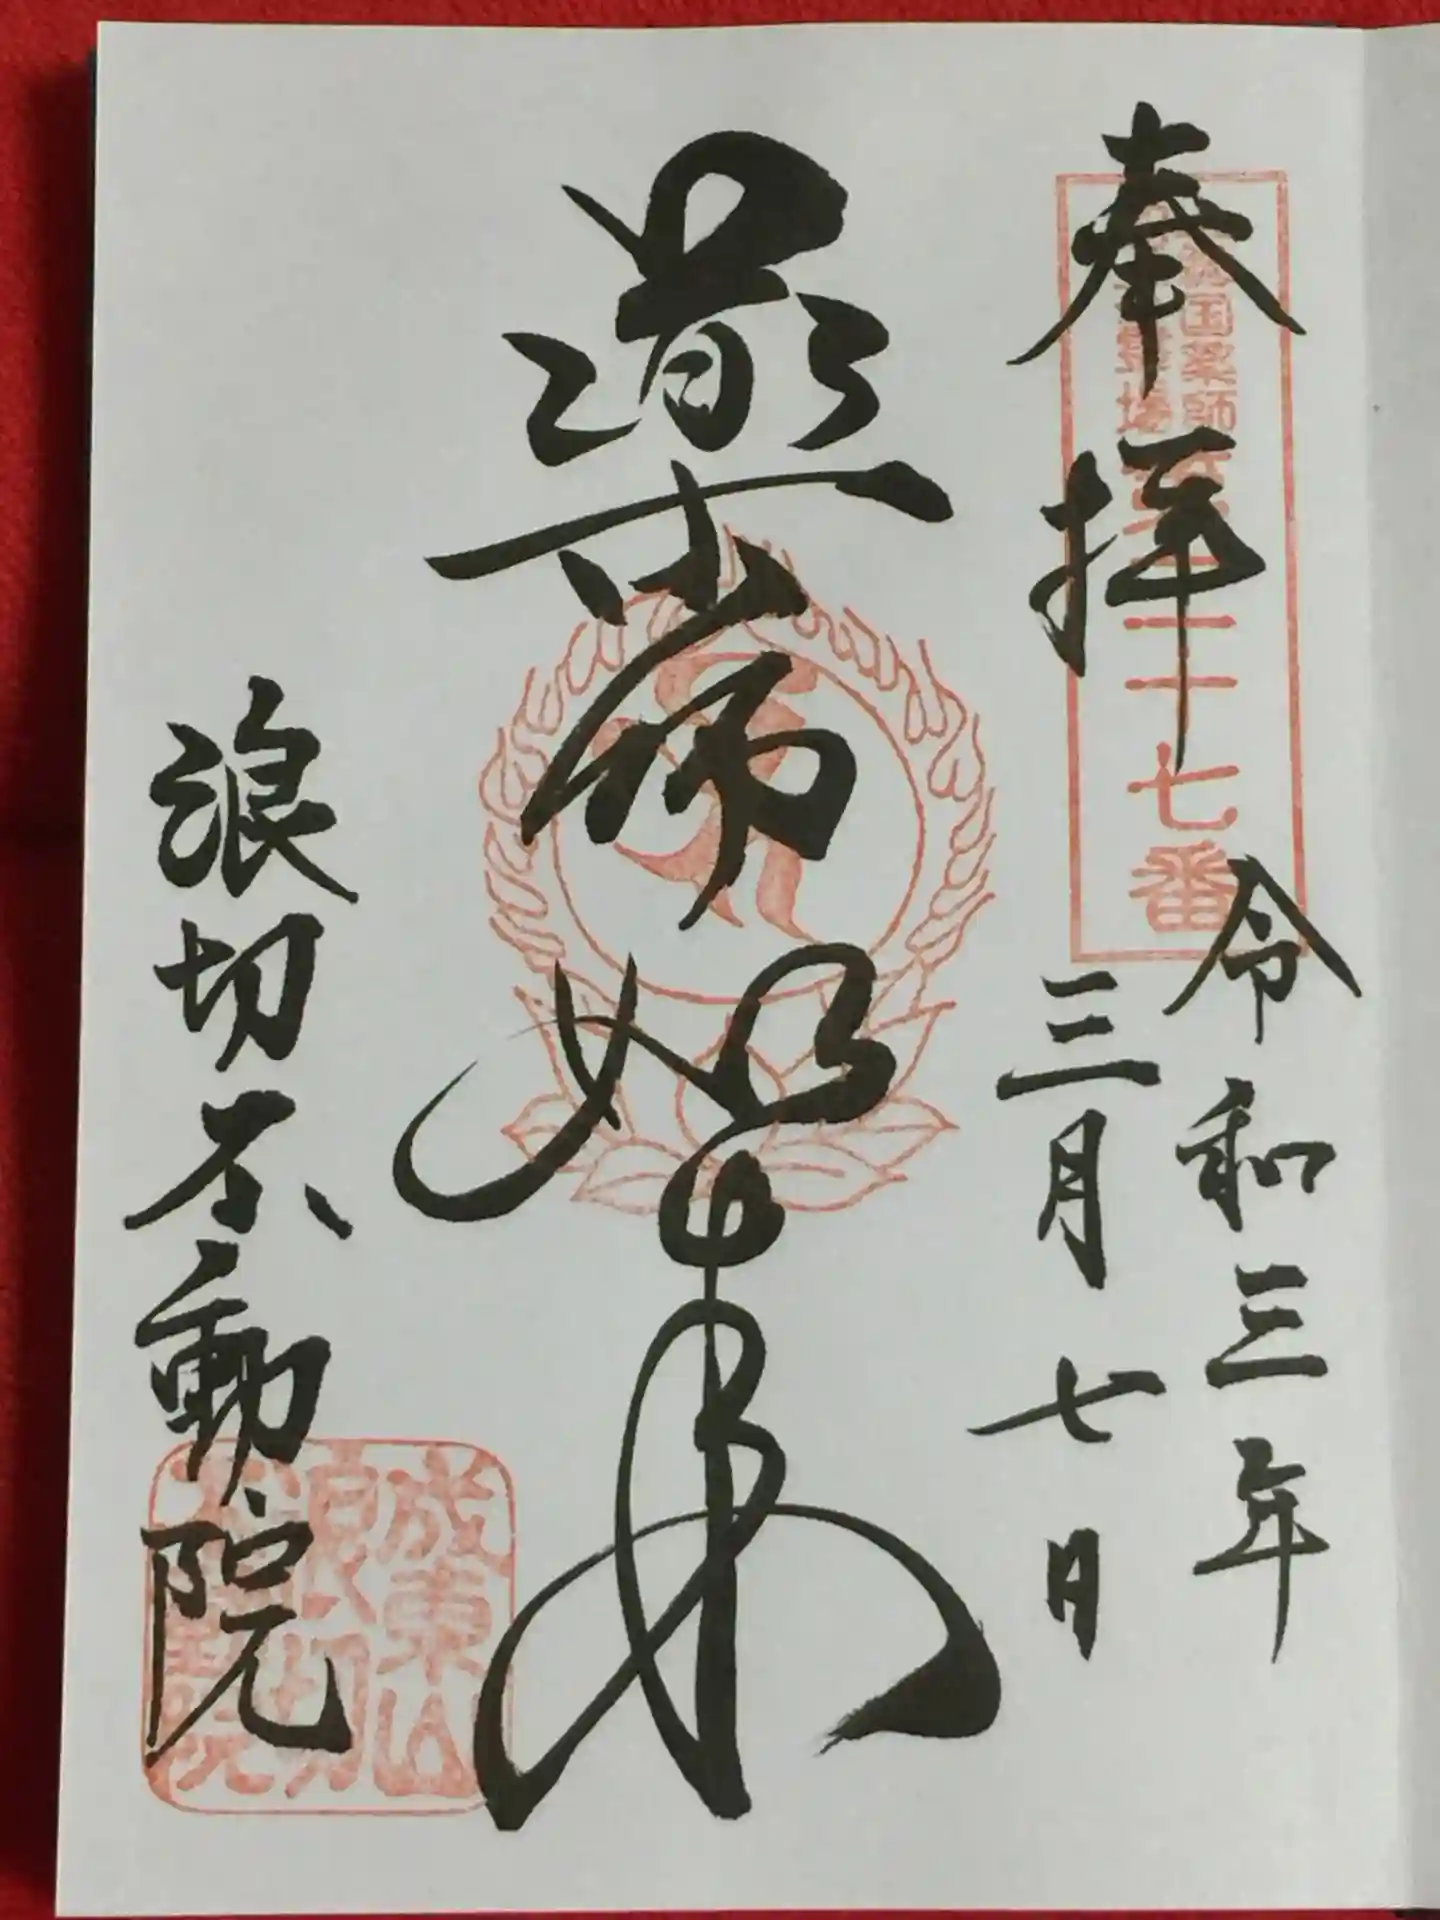 奉拝
令和三年
三月七日
国薬師
霊場
二十七番
薬师如来
浪切不動院
成東山
浪切
不動院